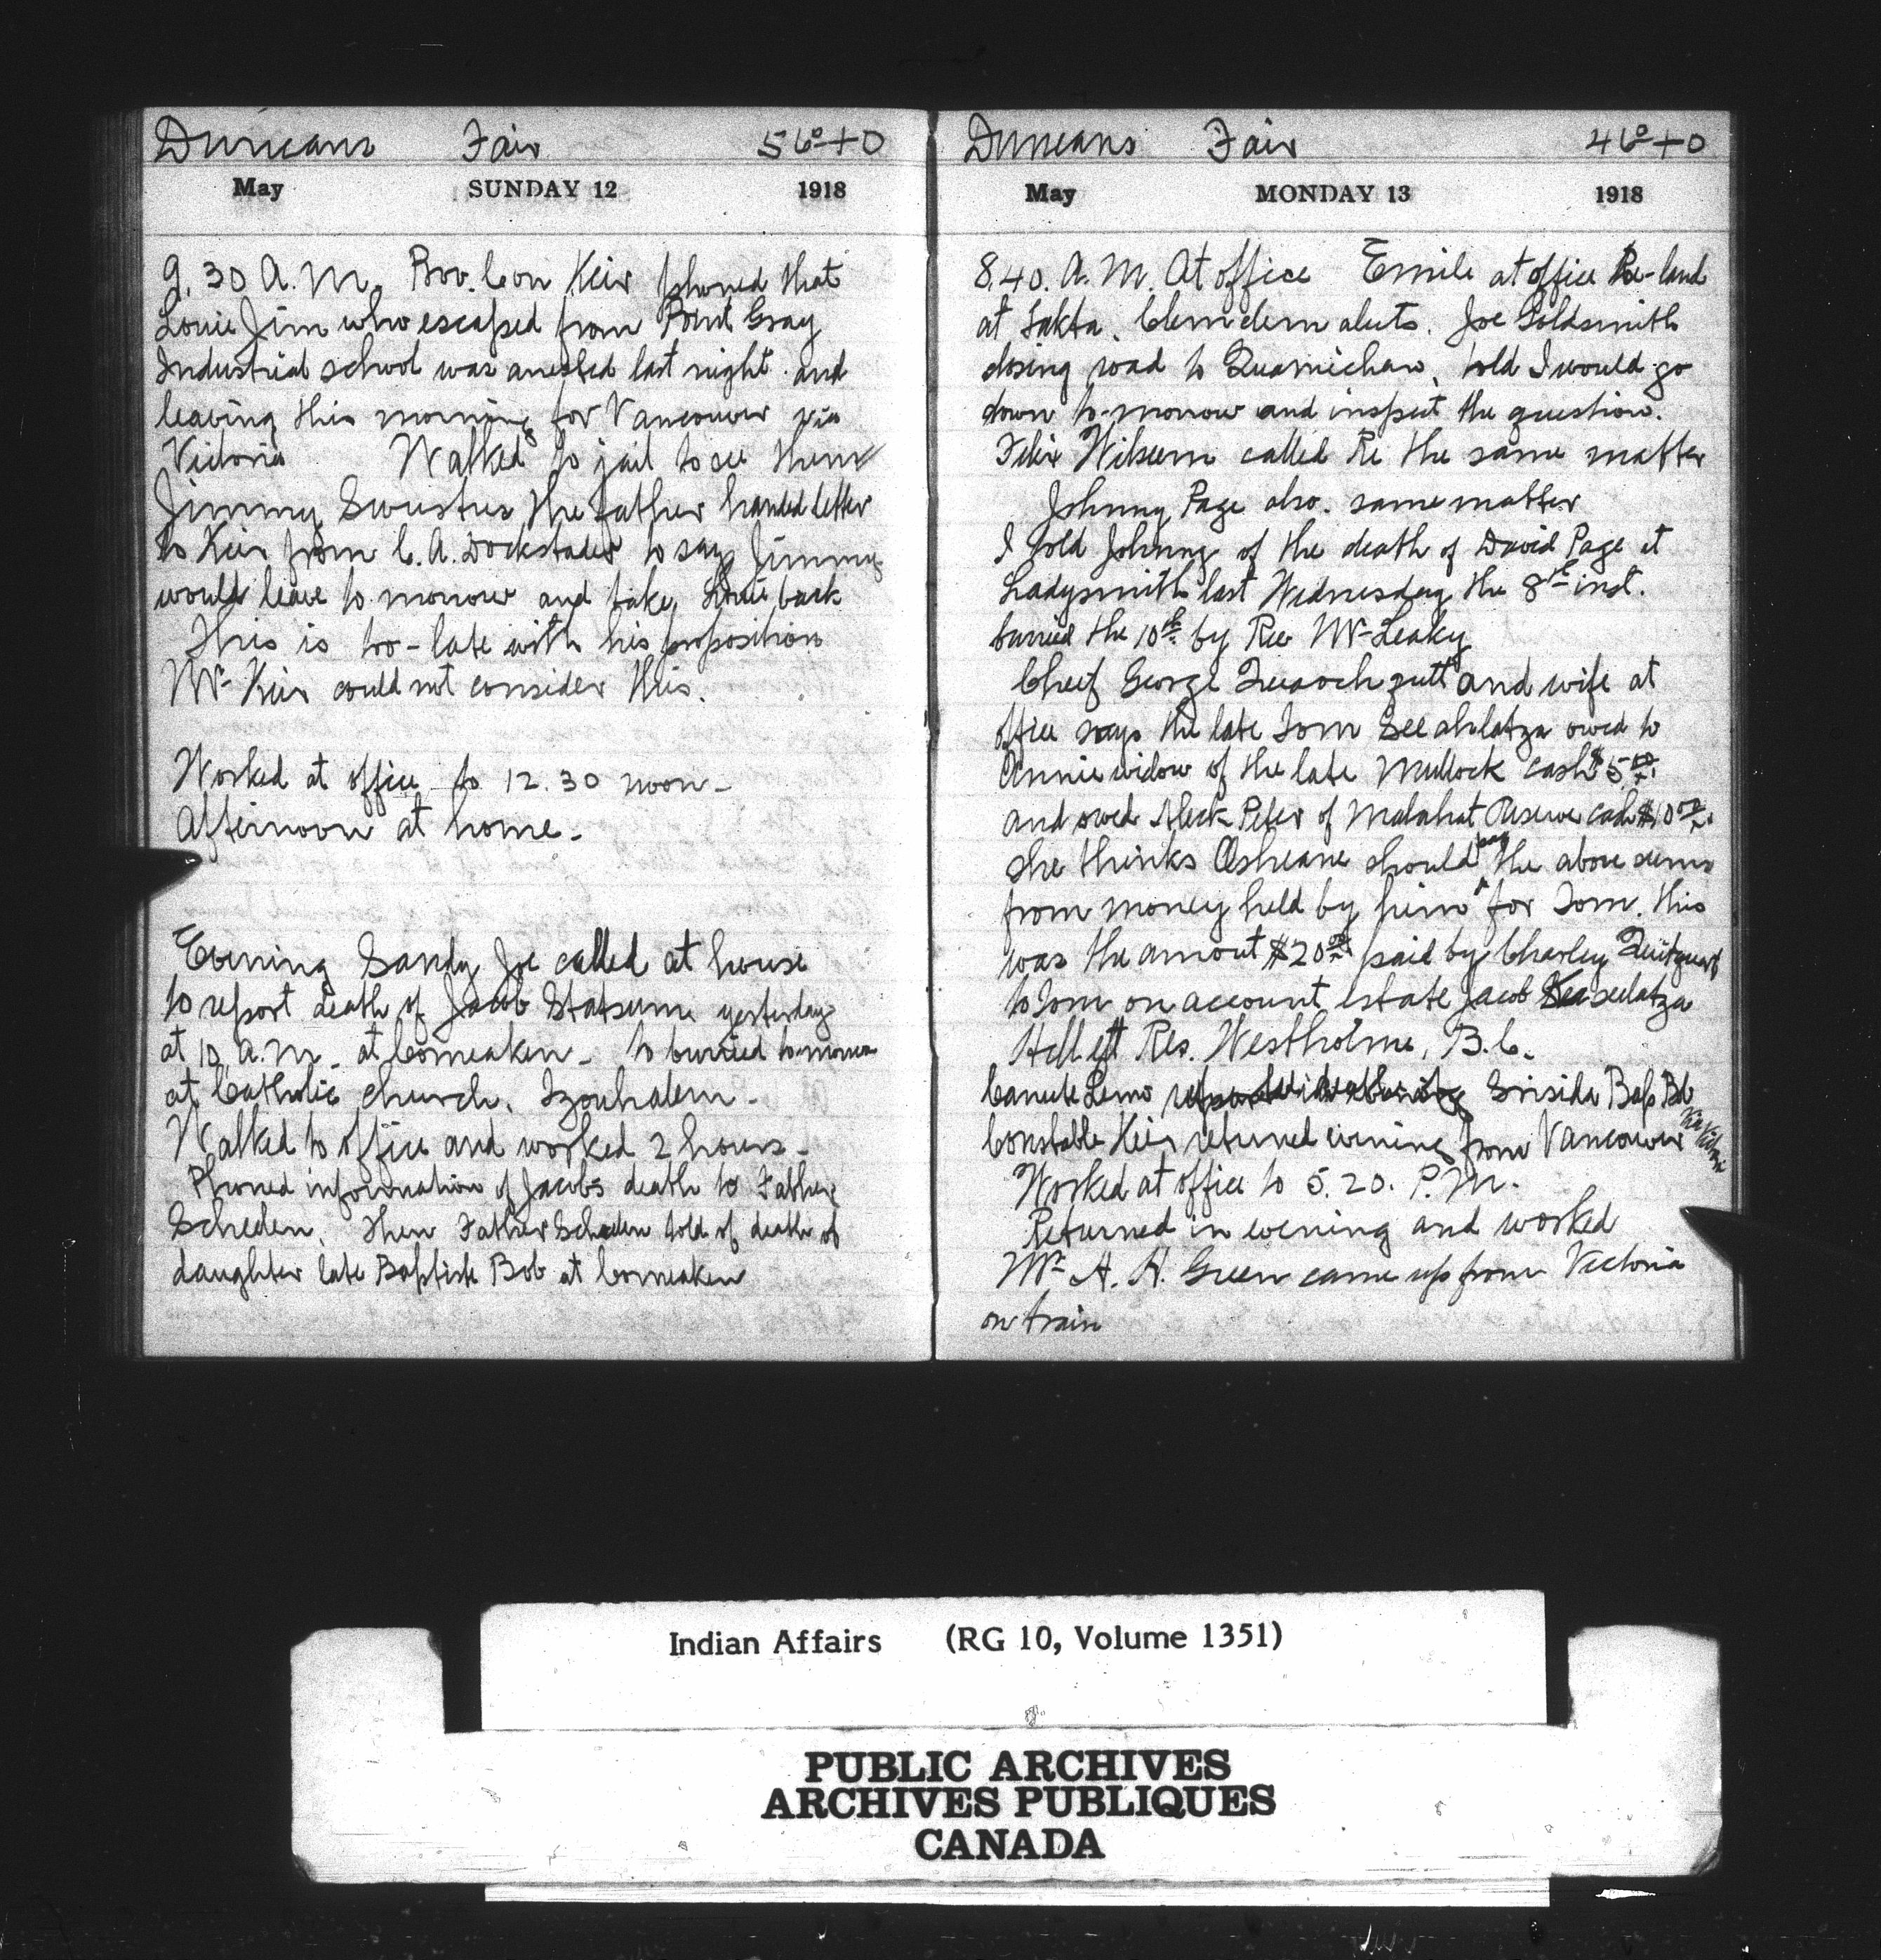 Duncans Fair 56°+0
May SUNDAY 12 1918
9.30 A.M. Prov. Con Keir phoned that
Louie Jim who escaped from Point Gray
Industrial school was arrested last night and
leaving this morning for Vancouver via
Victoria Walked to jail to see them
Jimmy the father handed letter
to Keir from C. A. Dockstader to say Jimmy
would leave to-morrow and take Louie back
This is too-late with his proposition
Mr Keir could not consider this.
Worked at office to 12.30 noon-
Afternoon at home-
Evening Sandy Joe called at house
to report death of Jacob Statsum yesterday
at 10 A.M. at Comeaken- to burried to-morrow
at Catholic church. Tzouhalem-
Walked to office and worked 2 hours-
Phoned information of Jacobs death to Father
Scheelen. Then Father Scheelen told of death of
daughter late Baptiste Bob at Comeaken
Duncans Fair 46°+0
May MONDAY 13 1918
8.40. A.M. At office Emile at office Re-land
at Clemclemaluts. Joe Goldsmith
closing road to Quamichan, told I would go
down to-morrow and inspect the question.
Felix called Re the same matter
Johnny Page also. same matter
I told Johnny of the death of David Page at
Ladysmith last Wednesday the 8th inst.
burried the 10th by Rev Mr Leaky
Chief George and wife at
office says the late Tom owed to
Annie widow of the late Mullock cash $5.00
and owed Aleck Peter of Malahat Reserve cash $10.00
She thinks should pay the above sums
from money held by him for Tom. This
was the amout $20.00 paid by Charley
to Tom on account estate Jacob
Res. Westholme, B.C.
Canute Bap Bob
Constable Keir returned evening from Vancouver via Victoria
Worked at office to 5.20. P.M.
Returned in evening and worked
Mr A. H. Green came up from Victoria
on train
Indian Affairs (RG 10, Volume 1351)
PUBLIC ARCHIVES
ARCHIVES PUBLIQUES
CANADA